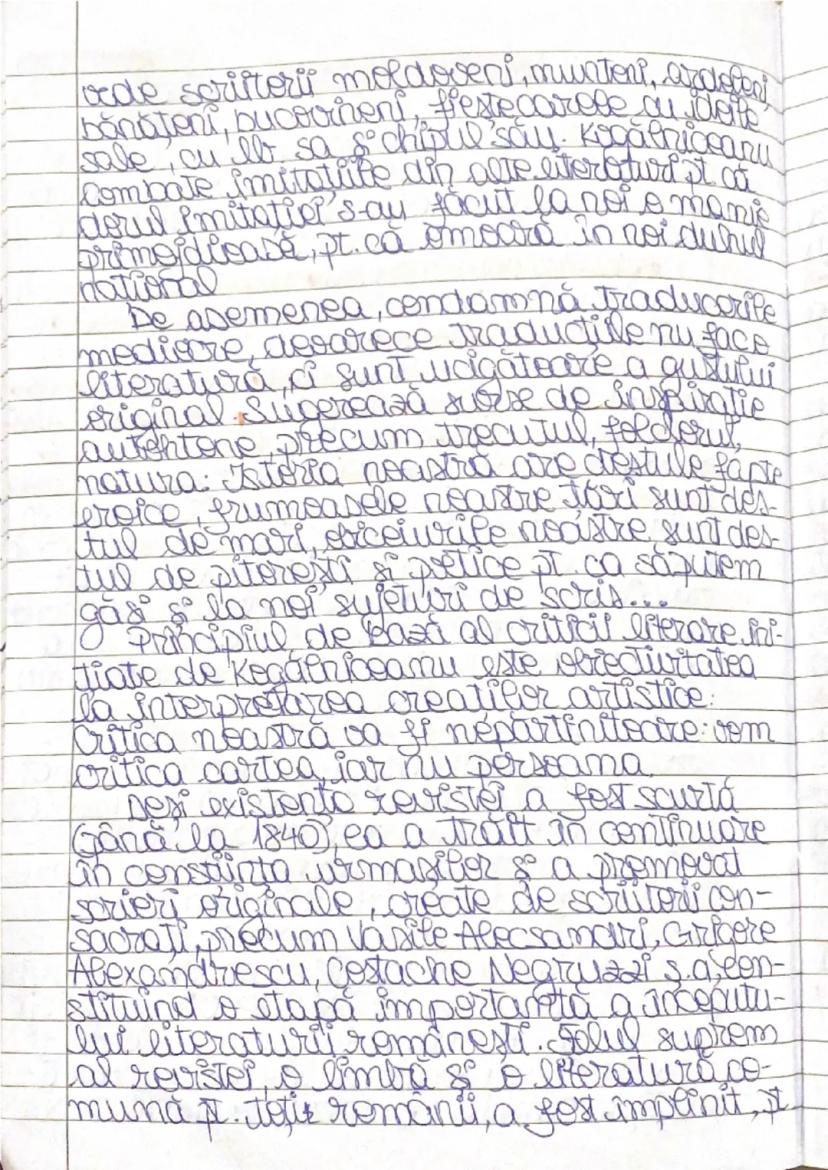 vede scriitorii moldoveni, munteni, ardeleni
bănățeni, bucovineni, fieștecarele cu ideile
sale, cu lb. sa și chipul său. Kogălniceanu
combate imitațiile din alte literaturi pt că
dorul imitației s-au făcut la noi o manie
primejdioasă, pt. că omoară în noi duhul
național
De asemenea, condamnă traducerile
mediocre, deoarece traducțiile nu fac
literatură, ci sunt ucigătoare a gustului
original. Sugerează surse de inspirație
autohtone, precum trecutul, folclorul,
natura: Istoria noastră are destule fapte
eroice, frumoasele noastre țări sunt des-
tul de mari, obiceiurile noastre sunt des-
tul de pitorești și poetice pt. ca să putem
găsi și la noi sujeturi de scris...
Principiul de bază al criticii literare ini-
țiate de Kogălniceanu este obiectivitatea
la interpretarea creațiilor artistice:
Critica noastră va fi nepărtinitoare: vom
critica cartea, iar nu persoana
Deși existența revistei a fost scurtă
(până la 1840), ea a trăit în continuare
în conștiința urmașilor și a promovat
scrieri originale, create de scriitorii con-
sacrați, precum Vasile Alecsandri, Grigore
Alexandrescu, Costache Negruzzi ș.a, con-
stituind o etapă importantă a începutu-
lui literaturii românești. Țelul suprem
al revistei, o limbă și o literatură co-
mună pt. toți românii, a fost împlinit, pt